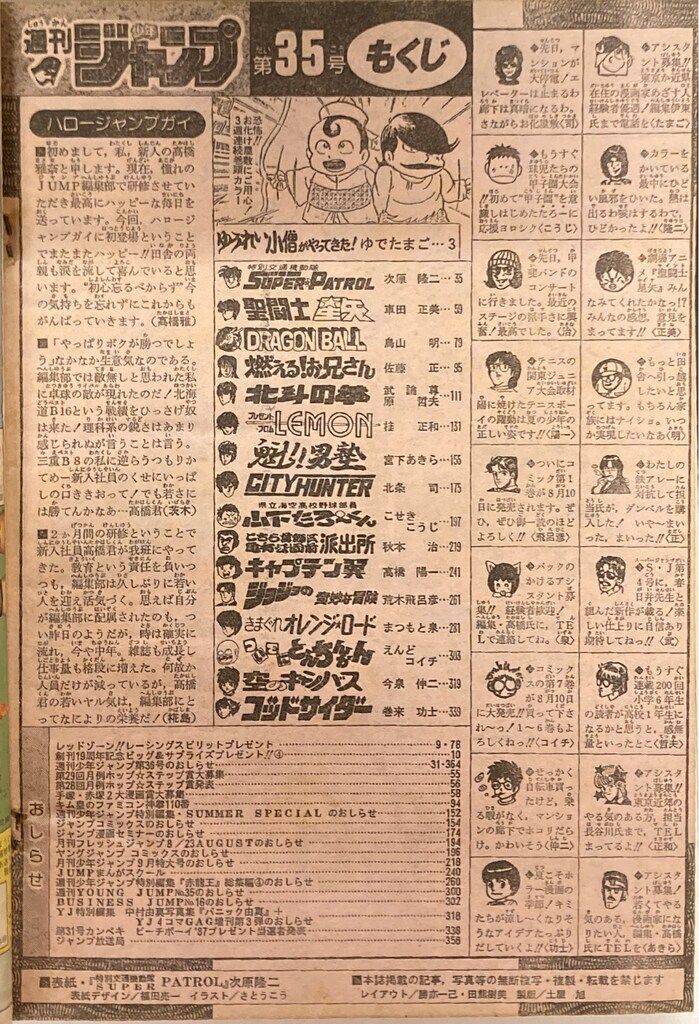 週刊
少年
ジャンプ
第35号
もくじ
ハロージャンプガイ
■初めまして,私,新人の高橋
雅奈と申します。現在,憧れの
JUMP編集部で研修させてい
ただき最高にハッピーな毎日を
送っています。今回,ハロージ
ャンプガイに初登場ということ
でまたまたハッピー!!田舎の両
親も涙を流して喜んでいると思
います。“初心忘るべからず”今
の気持ちを忘れずにこれからも
がんばっていきます。(高橋雅)
■「やっぱりボクが勝つでしょ
う」なかなか生意気なのである。
編集部では敵無しと思われた私
に卓球の敵が現れたのだ!北海
道B16という戦績をひっさげ奴
は来た!理科系の鋭さはあまり
感じられぬが言うことは言う。
三重B8の私に逆らうつもりか
てめー新入社員のくせにいっぱ
しの口ききおって!でも若さに
は勝てんかなあ…高橋君(茨木)
■2か月間の研修ということで
新入社員高橋君が我班にやって
きた。教育という責任を負いつ
つも,編集部は久しぶりに若い
人を迎え活気づく。思えば自分
が編集部に配属されたのも,つ
い昨日のようだが,時は確実に
流れ,今や中年。雑誌も成長し
仕事量も格段に増えた。何故か
人員だけが減っているが,高橋
君の若いヤル気は,編集部にと
ってなによりの栄養だ!(椛島)
恐怖!!
お化け屋敷にご用心!
3週連続巻頭カラー
ゆうれい小僧がやってきた! ゆでたまご…3
特別交通機動隊
SUPER PATROL 次原 隆二…35
聖闘士星矢 車田 正美…59
DRAGON BALL 鳥山 明…79
燃える!お兄さん 佐藤 正…95
北斗の拳 武論尊 原 哲夫…111
プレゼント・フロム LEMON 桂 正和…131
魁!!男塾 宮下あきら…155
CITY HUNTER 北条 司…175
県立海空高校野球部員
山下たろーくん こせき こうじ…197
こちら葛飾区亀有公園前派出所 秋本 治…219
キャプテン翼 高橋 陽一…241
ジョジョの奇妙な冒険 荒木飛呂彦…261
きまぐれオレンジ・ロード まつもと泉…281
ついでにとんちんかん えんど コイチ…303
空のキャンバス 今泉 伸二…319
ゴッドサイダー 巻来 功士…339
おしらせ
レッドゾーン!!レーシングスピリットプレゼント 9・78
創刊19周年記念ビッグ&サプライズプレゼント!!④ 10
週刊少年ジャンプ第36号のおしらせ 31・364
第29回月例ホップ☆ステップ賞大募集 55
第28回月例ホップ☆ステップ賞発表 56
手塚・赤塚2大漫画賞大募集 58
キム皇のファミコン神拳110番 94
週刊少年ジャンプ特別編集・SUMMER SPECIALのおしらせ 152
ジャンプコミックスのおしらせ 154
ジャンプ漫画セミナーのおしらせ 174
月刊フレッシュジャンプ8/23AUGUSTのおしらせ 194
ヤングジャンプコミックスのおしらせ 196
月刊少年ジャンプ9月特大号のおしらせ 218
JUMPまんがスクール 240
週刊少年ジャンプ特別編集『赤龍王』総集編④のおしらせ 260
週刊YOUNG JUMP№35のおしらせ 300
BUSINESS JUMP№16のおしらせ 302
YJ特別編集 中村由真写真集『パニック由真』+
YJ4コマGAG増刊第3弾のおしらせ 318
第31号カンペキ ピーチボーイ'87プレゼント当選者発表 338
ジャンプ放送局 358
◆先日,マ
ンションが
大停電!エ
レベーターは止まるわ
廊下は真暗になるわ。
さながらお化屋敷〈司〉
◆アシスタ
ント募集!!
東京か近県
在住の漫画家めざす人
経験者優遇!編集伊藤
氏まで電話を〈たまご〉
◆もうすぐ
球児たちの
甲子園大会
!!初めて“甲子園”を意
識しはじめたたろーに
応援ヨロシク〈こうじ〉
◆カラーを
かいている
最中にひど
い風邪をひいた。熱は
出るわ咳はするわで,
ひどかったよ!!〈隆二〉
◆先日,甲
斐バンドの
コンサート
に行きました。最近の
ステージの派手さに興
奮!最高でした。〈治〉
◆劇場アニ
メ『聖闘士
星矢』みん
なみてくれたかなっ!?
みんなの感想,意見を
まってます!!〈正美〉
◆テニスの
関東ジュニ
ア大会取材
陽に焼けたテニスボー
イの躍動は夏の少年の
正しい姿です!!〈陽一〉
◆もっと田
舎へ引っ越
したいと思
ってます。もちろん家
族にはナイショ。いつ
か実現したいなあ〈明〉
◆ついにコ
ミックス第1
巻が8月10
日に発売されます。ぜ
ひ,ぜひ御一読のほど
よろしく!!〈飛呂彦〉
◆わたしの
鉄アレーに
対抗して担
当氏が,ダンベルを購
入した!いやーまい
った,まいった!!〈正〉
◆バックの
かけるアシ
スタント募
集!!経験者歓迎!編
集・高橋氏に,TE
Lで連絡してね。〈泉〉
◆S・J第
4号に,春
日井先生と
組んだ新作が載る!素
晴しい仕上りに自信あり
期待してねっ!!〈武〉
◆コミック
スの第7巻
が8月10日
に大発売!!買って下さ
れ~っ!1~6巻もよ
ろしくねっ!!〈コイチ〉
◆もうすぐ
連載200回
小学6年生
の読者が高校1年生に
なるかと思うと,感無
量といったとこ〈哲夫〉
◆せっかく
自転車買っ
たけど,乗
る暇がなく,マンショ
ンの廊下でホコリだら
け。かわいそう〈伸二〉
◆アシスタ
ント募集!!
東京近郊の
やる気のある方,担当
長谷川氏まで,TEL
まってるよ!!〈正和〉
◆夏こそホ
ラー漫画の
季節!キミ
たちが涼し~くなりそ
うなアイデアたっぷり
だしていくよ!!〈功士〉
◆アシスタ
ント募集!
若くてやる
気のある,漫画家にな
りたい人。編集・高橋
氏にTELを〈あきら〉
■表紙・『特別交通機動隊SUPER PATROL』次原隆二
表紙デザイン/福田亮一 イラスト/さとうこう
■本誌掲載の記事,写真等の無断複写・複製・転載を禁じます
レイアウト/勝亦一己・田熊樹美 製版/土屋 旭